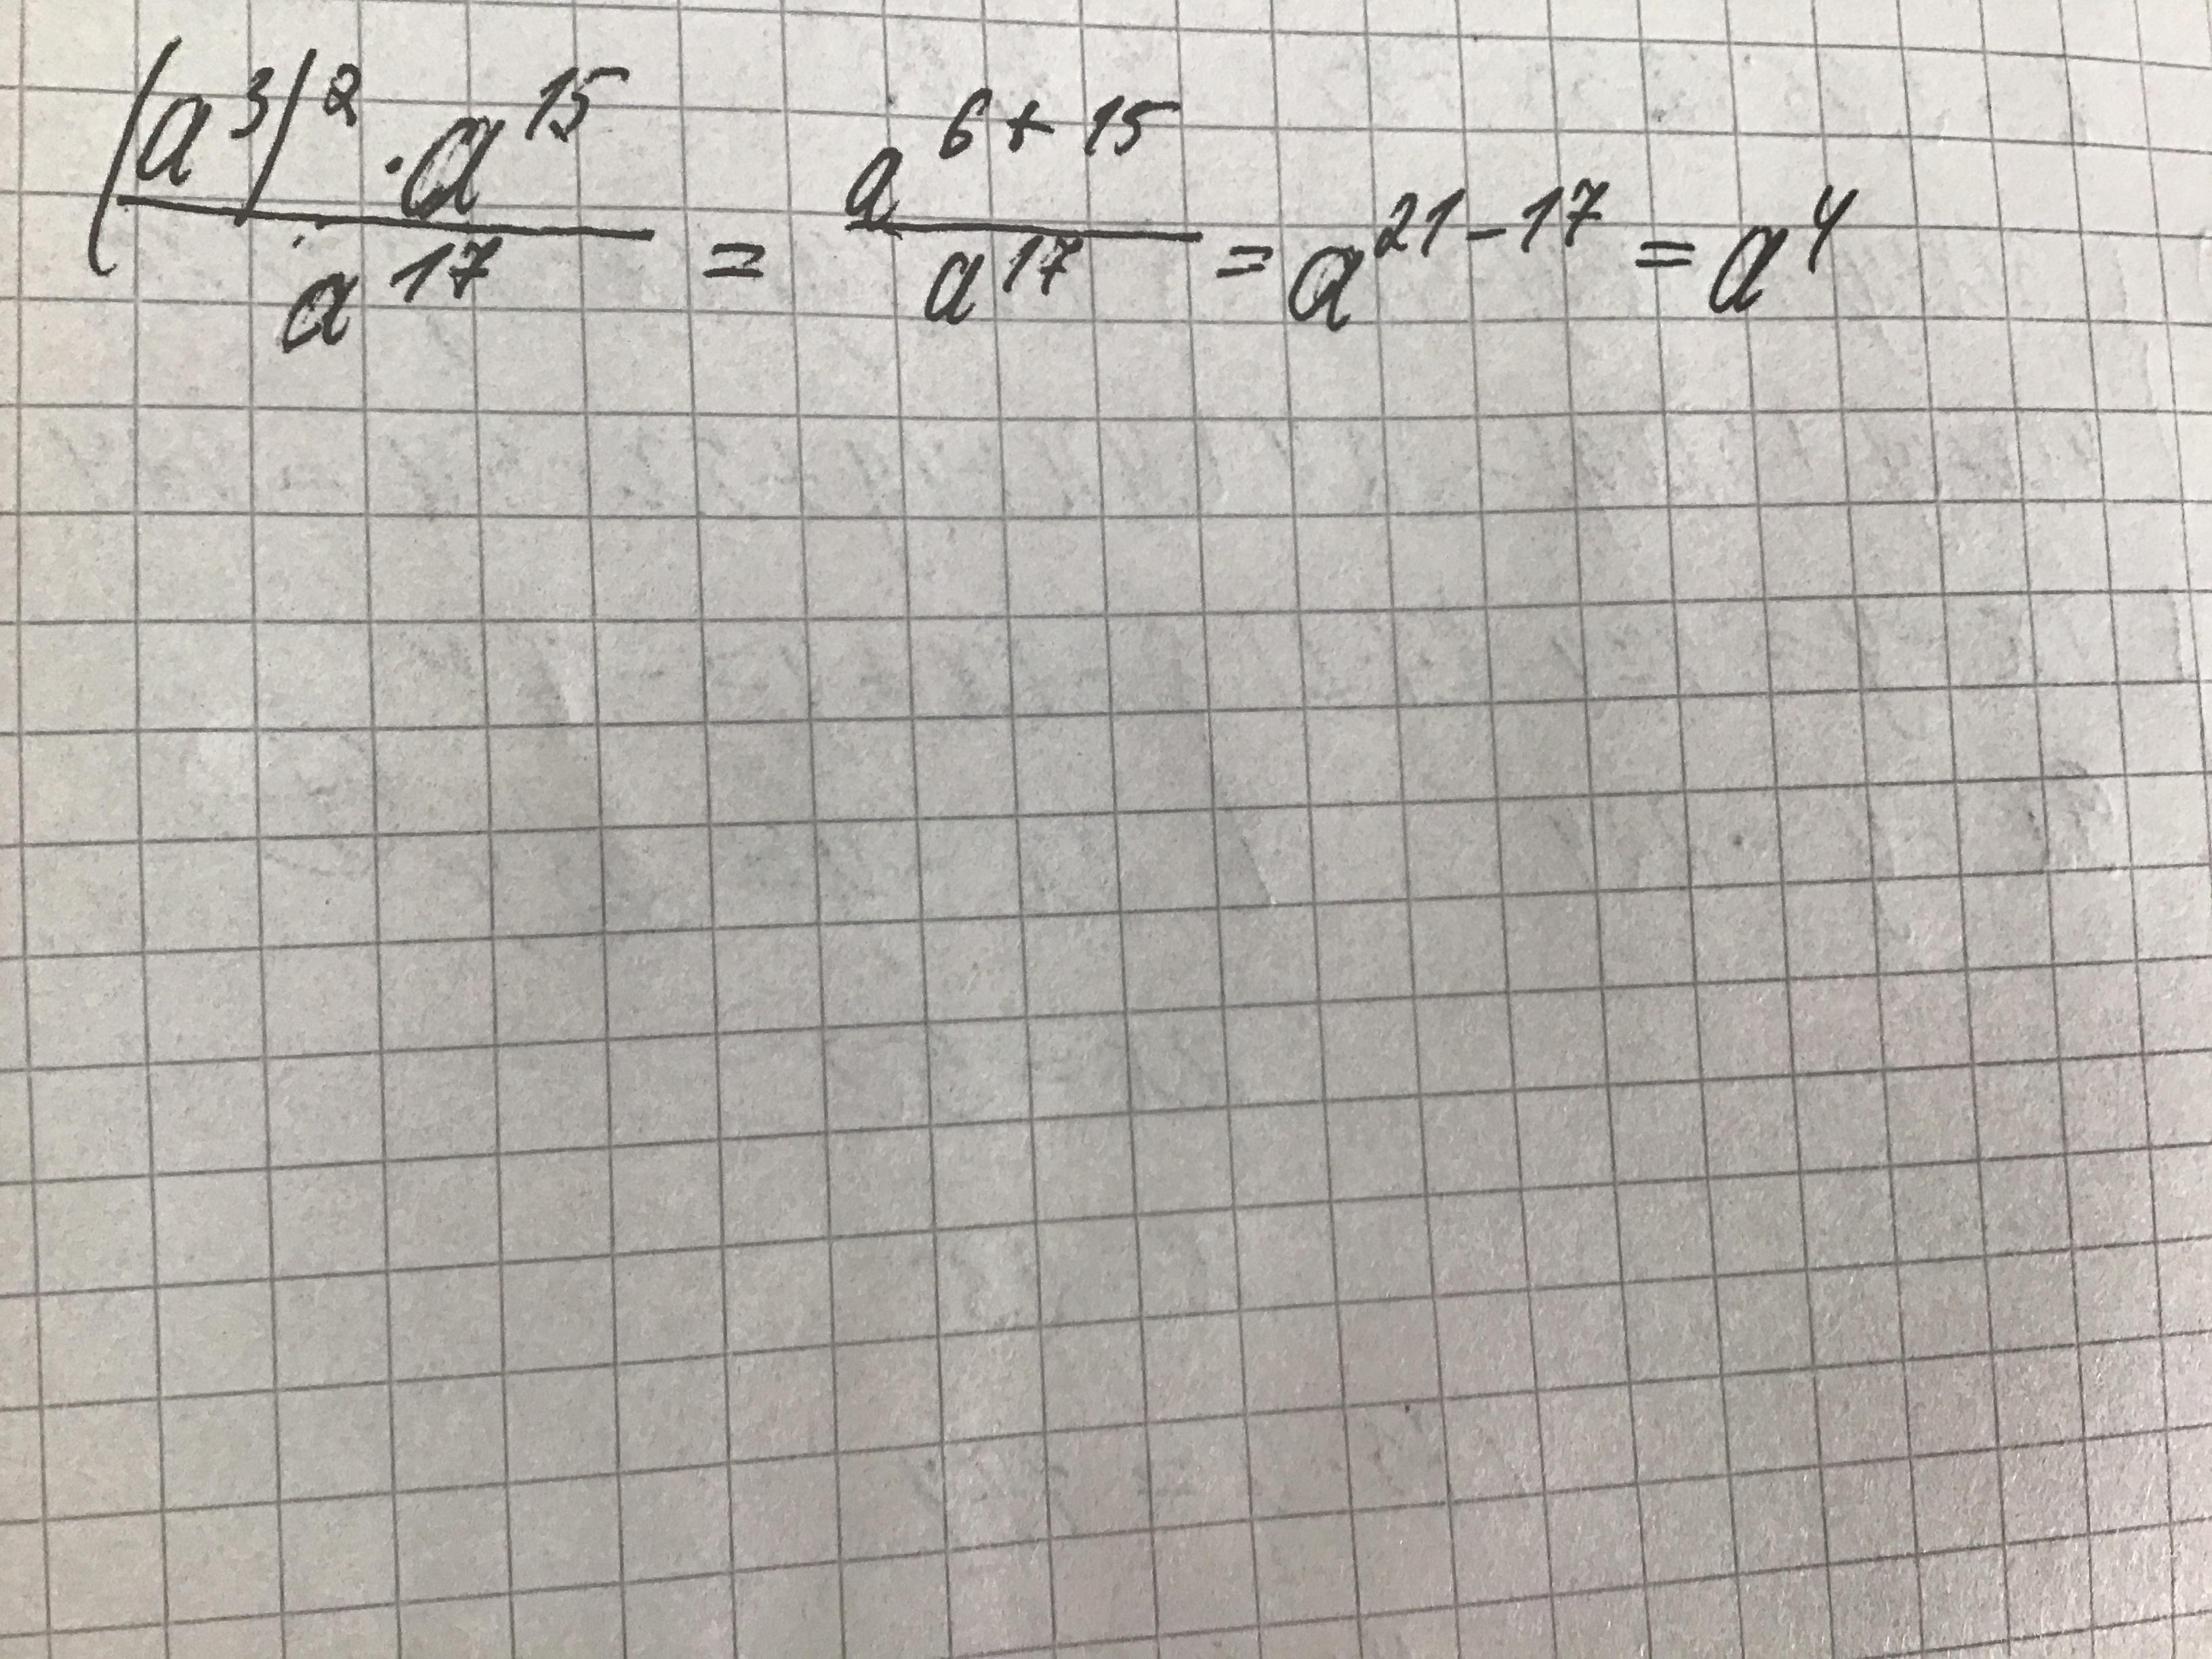 (a³)² · a¹⁵ / a¹⁷ = a⁶⁺¹⁵ / a¹⁷ = a²¹⁻¹⁷ = a⁴